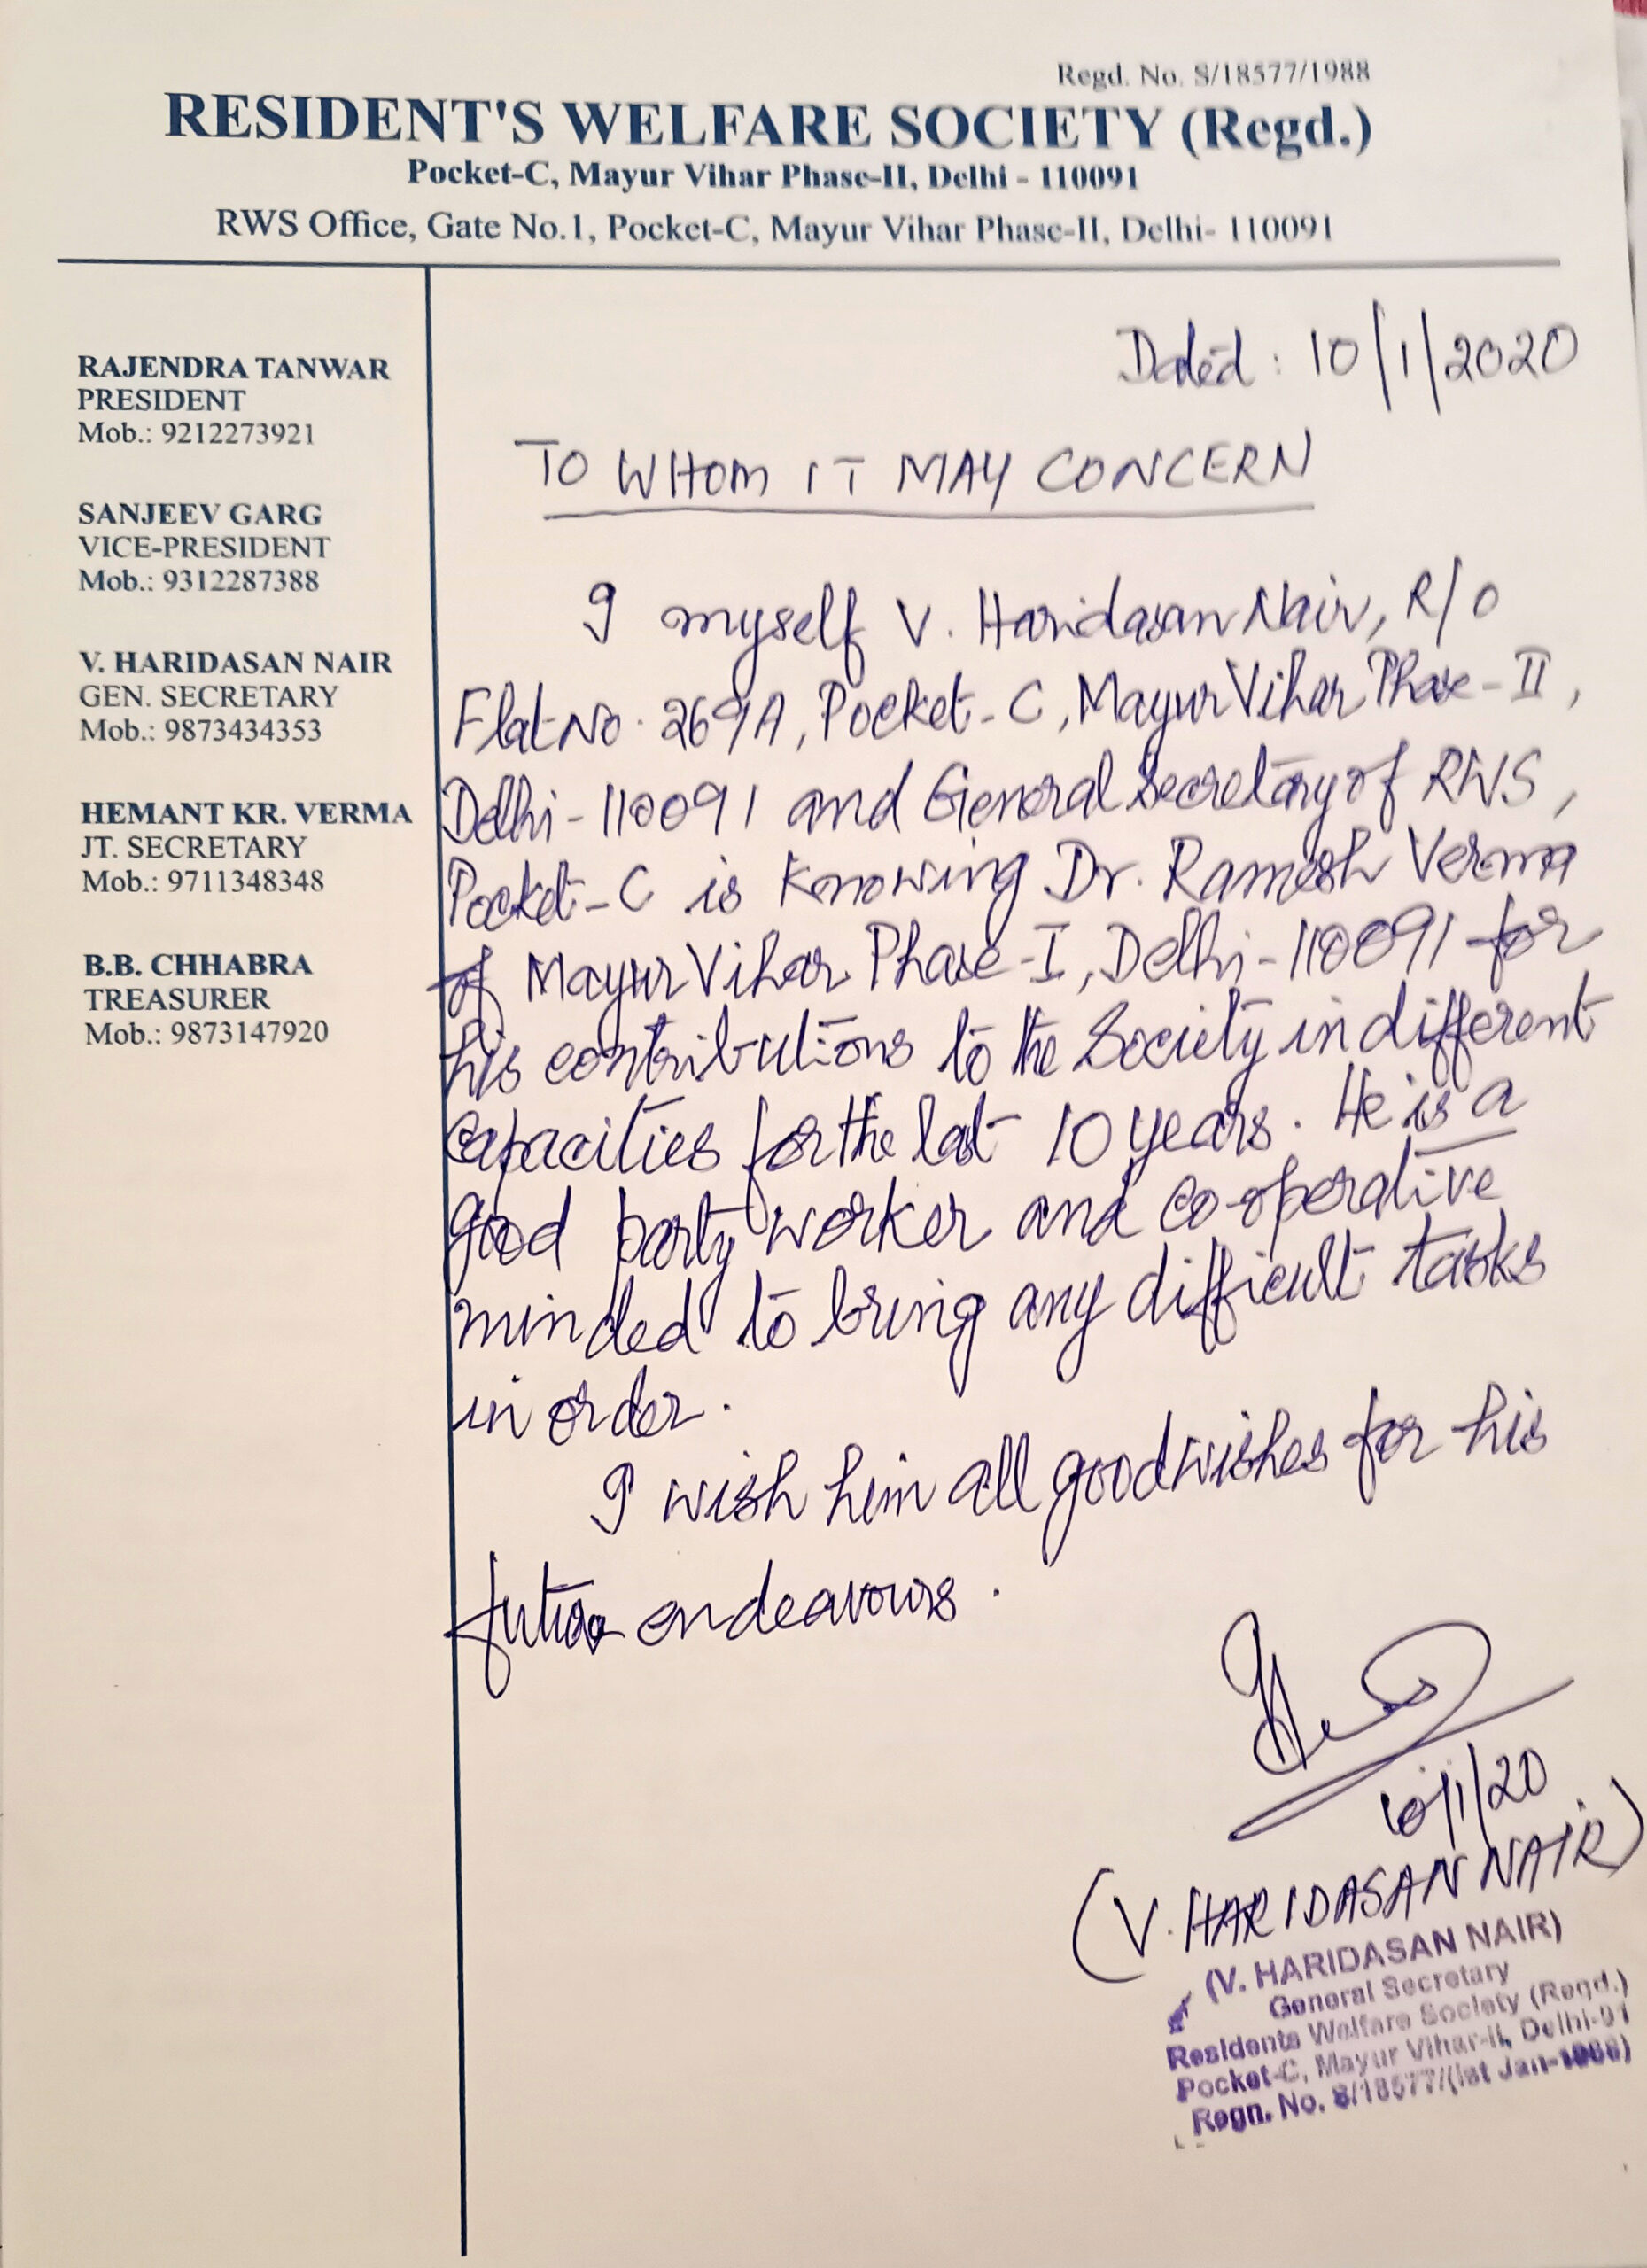 Regd. No. S/18577/1988
RESIDENT'S WELFARE SOCIETY (Regd.)
Pocket-C, Mayur Vihar Phase-II, Delhi - 110091
RWS Office, Gate No.1, Pocket-C, Mayur Vihar Phase-II, Delhi- 110091
RAJENDRA TANWAR
PRESIDENT
Mob.: 9212273921
SANJEEV GARG
VICE-PRESIDENT
Mob.: 9312287388
V. HARIDASAN NAIR
GEN. SECRETARY
Mob.: 9873434353
HEMANT KR. VERMA
JT. SECRETARY
Mob.: 9711348348
B.B. CHHABRA
TREASURER
Mob.: 9873147920
Dated : 10/1/2020
TO WHOM IT MAY CONCERN
I myself V. Haridasan Nair, R/o
Flat No. 269A, Pocket-C, Mayur Vihar Phase-II,
Delhi-110091 and General Secretary of RWS,
Pocket-C is knowing Dr. Ramesh Verma
of Mayur Vihar Phase-I, Delhi-110091 for
his contributions to the Society in different
capacities for the last 10 years. He is a
good party worker and co-operative
minded to bring any difficult tasks
in order.
I wish him all good wishes for his
future endeavours.
10/1/20
(V. HARIDASAN NAIR)
(V. HARIDASAN NAIR)
General Secretary
Residents Welfare Society (Regd.)
Pocket-C, Mayur Vihar-II, Delhi-91
Regn. No. S/18577/(Ist Jan-1988)